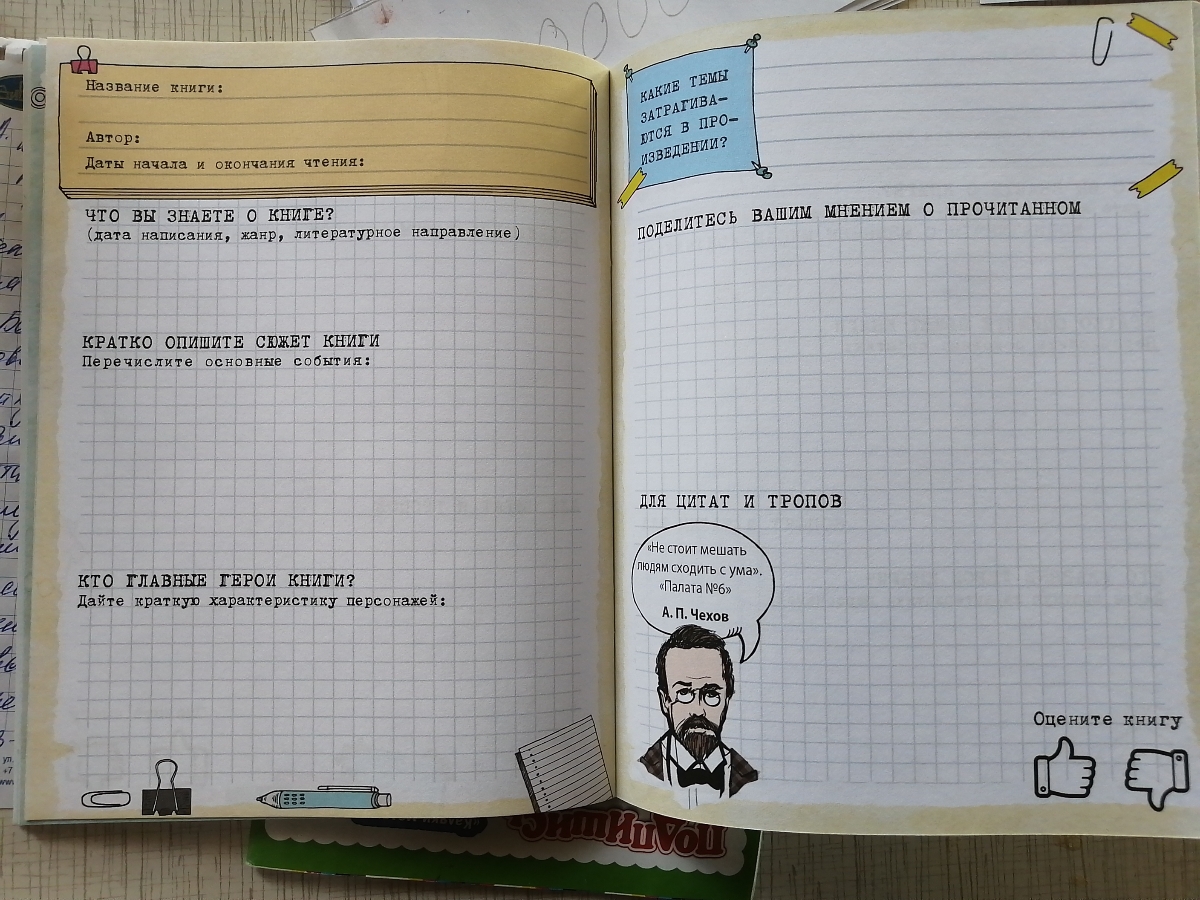 Название книги:
Автор:
Даты начала и окончания чтения:
ЧТО ВЫ ЗНАЕТЕ О КНИГЕ?
(дата написания, жанр, литературное направление)
КРАТКО ОПИШИТЕ СЮЖЕТ КНИГИ
Перечислите основные события:
КТО ГЛАВНЫЕ ГЕРОИ КНИГИ?
Дайте краткую характеристику персонажей:
КАКИЕ ТЕМЫ
ЗАТРАГИВА-
ЮТСЯ В ПРО-
ИЗВЕДЕНИИ?
ПОДЕЛИТЕСЬ ВАШИМ МНЕНИЕМ О ПРОЧИТАННОМ
ДЛЯ ЦИТАТ И ТРОПОВ
«Не стоит мешать
людям сходить с ума».
«Палата №6»
А. П. Чехов
Оцените книгу